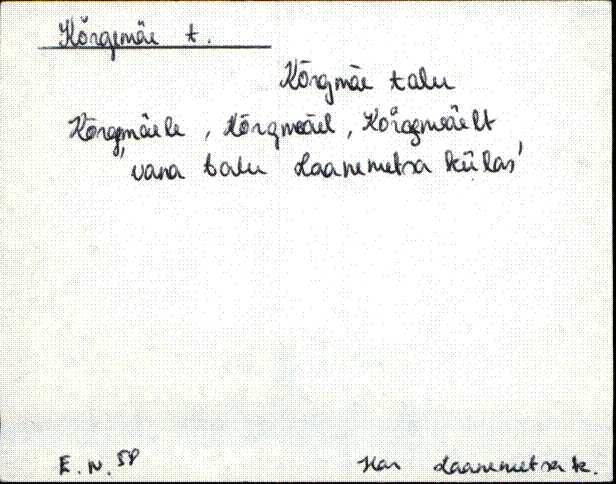 Kõrgemäe t.
Kõrgmäe talu
Kõrgemäele, Kõrgmeäel, Kõrgemeäelt
'vana talu Laanemetsa külas'
E. N. 58 Har Laanemetsa k.